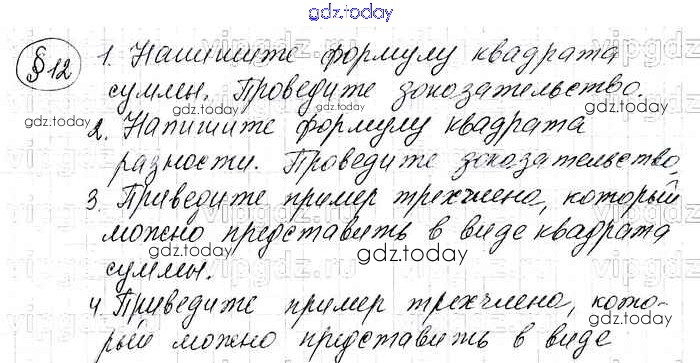 gdz.today
§12
1. Напишите формулу квадрата
суммы. Проведите доказательство.
2. Напишите формулу квадрата
разности. Проведите доказательство.
3. Приведите пример трехчлена, который
можно представить в виде квадрата
суммы.
4. Приведите пример трехчлена, кото-
рый можно представить в виде
gdz.today
gdz.today
gdz.today
gdz.today
gdz.today
gdz.today
gdz.today